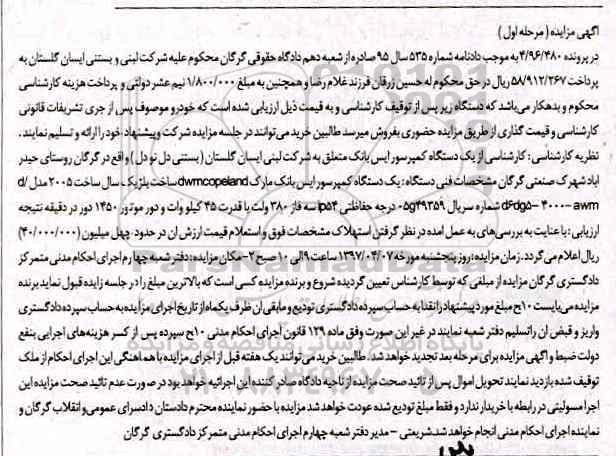 آگهی مزایده ( مرحله اول )
در پرونده ۴/۹۶/۴۸۰ به موجب دادنامه شماره ۵۳۵ سال ۹۵ صادره از شعبه دهم دادگاه حقوقی گرگان محکوم علیه شرکت لبنی و بستنی ایسان گلستان به
پرداخت ۵۸/۹۱۲/۲۶۷ ریال در حق محکوم له حسین زرقان فرزند غلام رضا و همچنین به مبلغ ۱/۸۰۰/۰۰۰ نیم عشر دولتی و پرداخت هزینه کارشناسی
محکوم و بدهکار می‌باشد که دستگاه زیر پس از توقیف کارشناسی و به قیمت ذیل ارزیابی شده است که خودرو موصوف پس از جری تشریفات قانونی
کارشناسی و قیمت گذاری از طریق مزایده حضوری بفروش میرسد طالبین خرید می‌توانند در جلسه مزایده شرکت و پیشنهاد خود را ارائه و تسلیم نمایند .
نظریه کارشناسی : کارشناسی از یک دستگاه کمپرسور ایس بانک متعلق به شرکت لبنی ایسان گلستان (بستنی دل نو دل ) واقع در گرگان روستای حیدر
اباد شهرک صنعتی گرگان مشخصات فنی دستگاه : یک دستگاه کمپرسور ایس بانک مارک dwmcopeland ساخت بلژیک سال ساخت ۲۰۰۵ مدل d/
d۶dg۵-۴۰۰۰-awm شماره سریال ۰۵g۴۹۳۵۹ درجه حفاظتی ip۵۴ سه فاز ۳۸۰ ولت با قدرت ۴۵ کیلو وات و دور موتور ۱۴۵۰ دور در دقیقه نتیجه
ارزیابی : با عنایت به بررسی‌های به عمل امده در نظر گرفتن استهلاک مشخصات فوق و استعلام قیمت ارزش ان در حدود چهل میلیون (۴۰/۰۰۰/۰۰۰)
ریال اعلام می‌گردد. زمان مزایده : روز پنجشنبه مورخه ۱۳۹۷/۰۴/۰۷ ساعت ۹ الی ۱۰ صبح ۲- مکان مزایده : دفتر شعبه چهارم اجرای احکام مدنی متمرکز
دادگستری گرگان مزایده از مبلغی که توسط کارشناس تعیین گردیده شروع و برنده مزایده کسی است که بالاترین مبلغ را در جلسه زایده قبول نماید برنده
مزایده می‌بایست ۱۰ح مبلغ مورد پیشنهاد را نقدا به حساب سپرده دادگستری تودیع و مابقی ان ظرف یکماه از تاریخ اجرای مزایده به حساب سپرده دادگستری
واریز و قبض ان را تسلیم دفتر شعبه نمایند در غیر این صورت وفق ماده ۱۲۹ قانون اجرای احکام مدنی ۱۰ح سپرده پس از کسر هزینه‌های اجرایی بنفع
دولت ضبط و اگهی مزایده برای مرحله بعد تجدید خواهد شد . طالبین خرید می‌توانند یک هفته قبل از اجرای مزایده با هماهنگی این اجرای احکام از ملک
توقیف شده بازدید نمایند تحویل اموال پس از تائید صحت مزایده از ناحیه دادگاه صادر کننده این اجرائیه خواهد بود در صورت عدم تائید صحت مزایده این
اجرا مسولیتی در رابطه با خریدار ندارد و فقط مبلغ تودیع شده عودت خواهد شد مزایده با حضور نماینده محترم دادستان دادسرای عمومی و انقلاب گرگان و
نماینده اجرای احکام مدنی انجام خواهد شد.شریعتی - مدیر دفتر شعبه چهارم اجرای احکام مدنی متمرکز دادگستری گرگان